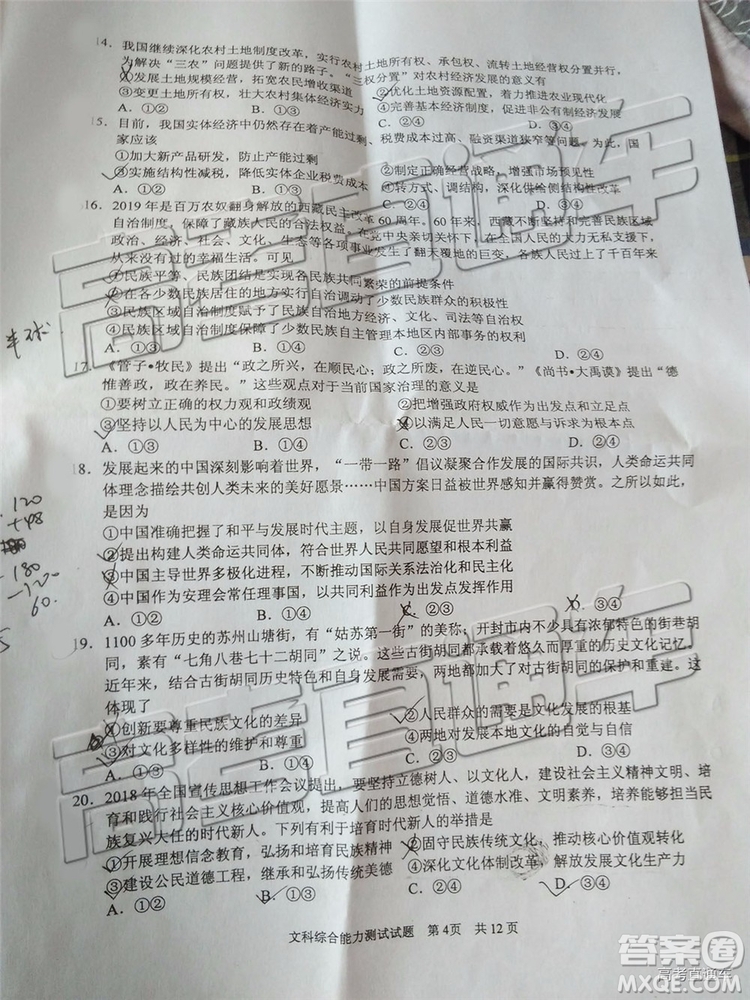 14. 我国继续深化农村土地制度改革，实行土地所有权、承包权、流转土地经营权分置并行，
为解决“三农”问题提供了新的路子。“三权分置”对农村经济发展的意义有
①发展土地规模经营，拓宽农民增收渠道
②优化土地资源配置，着力推进农业现代化
③变更土地所有权，壮大农村集体经济实力
④完善基本经济制度，促进非公有制经济发展
A．①② B．①③ C．②④ D．③④
15. 目前，我国实体经济中仍然存在着产能过剩、税费成本过高、融资渠道狭窄等问题。为此，国
家应该
①加大新产品研发，防止产能过剩
②制定正确经营战略，增强市场预见性
③实施结构性减税，降低实体企业税费成本
④转方式、调结构，深化供给侧结构性改革
A．①② B．①③ C．②④ D．③④
16. 2019 年是百万农奴翻身解放的西藏民主改革 60 周年。60 年来，西藏不断坚持和完善民族区域
自治制度，保障了藏族人民的合法权益，在党中央亲切关怀下、在全国人民的无私支援下，
政治、经济、社会、文化、生态等各项事业发生了翻天覆地的巨变，各族人民过上了千百年来
从来没有过的幸福生活。可见
①民族平等、民族团结是实现各民族共同繁荣的前提条件
②在各少数民族居住的地方实行自治调动了少数民族群众的积极性
③民族区域自治制度赋予了民族自治地方立法、行政、司法等自治权
④民族区域自治制度保障了少数民族自主管理本地区内部事务的权利
A．①③ B．①④ C．②③ D．②④
半球
17. 《管子•牧民》提出“政之所兴，在顺民心；政之所废，在逆民心。”《尚书•大禹谟》提出“德
惟善政，政在养民。”这些观点对于当前国家治理的意义是
①要树立正确的权力观和政绩观
②把发展党的执政地位作为出发点和立足点
③坚持以人民为中心的发展思想
④以满足人民一切意愿与诉求为根本点
A．①③ B．①④ C．②③ D．②④
18. 发展起来的中国深刻影响着世界，“一带一路”倡议凝聚合作发展的国际共识，人类命运共同
体理念描绘共创人类未来的美好愿景……中国方案日益被世界感知并赢得赞赏。之所以如此，
是因为
①中国准确把握了和平与发展时代主题，以自身发展促世界共赢
②提出构建人类命运共同体，符合世界人民共同愿望和根本利益
③中国主导世界多极化进程，不断推动国际关系法治化和民主化
④中国作为安理会常任理事国，以共同利益作为出发点发挥作用
A．①② B．①③ C．②④ D．③④
120
+48
180
-120
60.
19. 1100 多年历史的苏州山塘街，有“姑苏第一街”的美称，开封市内不少具有浓郁特色的街巷胡
同，素有“七角八巷七十二胡同”之说。这些古街胡同承载着悠久而厚重的历史文化记忆。
近年来，结合古街胡同历史特点和时代发展需要，两地都加大了对古街胡同的保护和重建。这
体现了
①创新要尊重民族文化的差异
②人民群众的需要是文化发展的根基
③对文化多样性的维护和尊重
④两地对自身文化的自觉与自信
A．①② B．①③ C．②④ D．③④
20. 2018 年全国宣传思想工作会议提出，要坚持立德树人、以文化人，建设社会主义精神文明、培
育和践行社会主义核心价值观，提高人们的思想觉悟、道德水准、文明素养，培养能够担当民
族复兴大任的时代新人。下列有利于培育时代新人的举措是
①开展理想信念教育，弘扬和培育民族精神
②固守民族传统文化，推动核心价值观转化
③建设公民道德工程，继承和弘扬传统美德
④深化文化体制改革，解放发展文化生产力
A．①② B．①③ C．②④ D．③④
文科综合能力测试试题 第 4页 共 12 页
高考直通车
高考直通车
答案圈
高考直通车
MXQE.COM